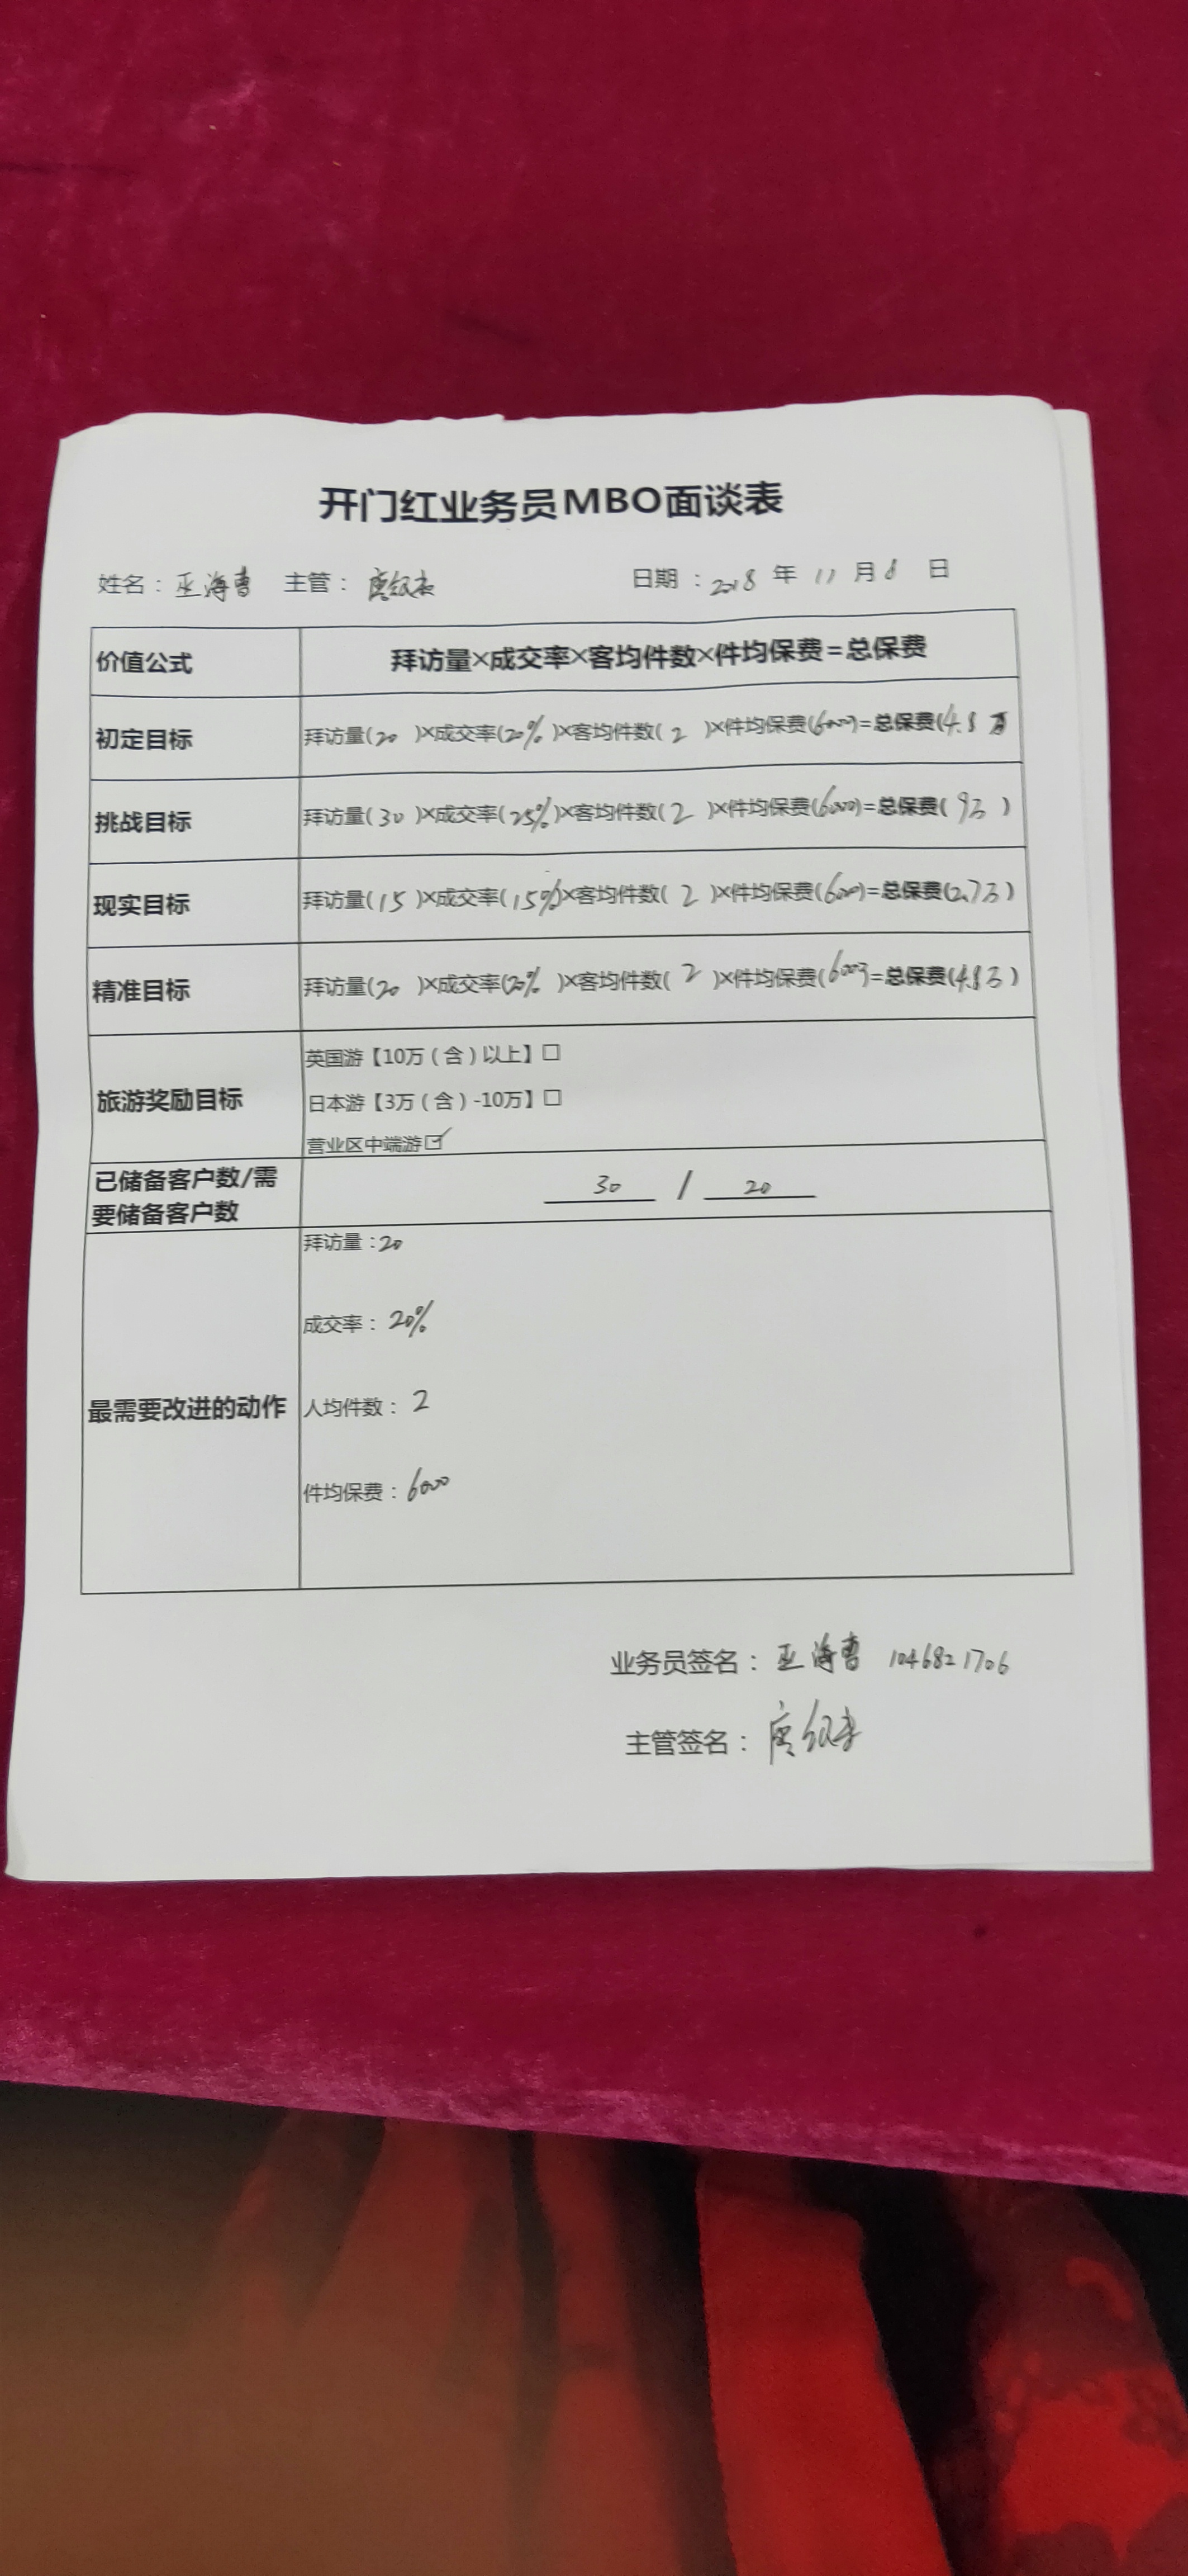 开门红业务员MBO面谈表
姓名：巫海曹 主管： 日期：2018 年 11 月 8 日
价值公式 拜访量×成交率×客均件数×件均保费=总保费
初定目标 拜访量(20 )×成交率(20% )×客均件数( 2 )×件均保费(6000)=总保费(4.8 万
挑战目标 拜访量(30 )×成交率(25%)×客均件数( 2 )×件均保费(6000)=总保费( 9万 )
现实目标 拜访量(15 )×成交率(15%)×客均件数( 2 )×件均保费(6000)=总保费(2.7万)
精准目标 拜访量(20 )×成交率(20% )×客均件数( 2 )×件均保费(6000)=总保费(4.8万)
旅游奖励目标
英国游【10万（含）以上】☐
日本游【3万（含）-10万】☐
营业区中端游☑
已储备客户数/需要储备客户数 30 / 20
最需要改进的动作
拜访量：20
成交率：20%
人均件数：2
件均保费：6000
业务员签名：巫海曹 1046821706
主管签名：